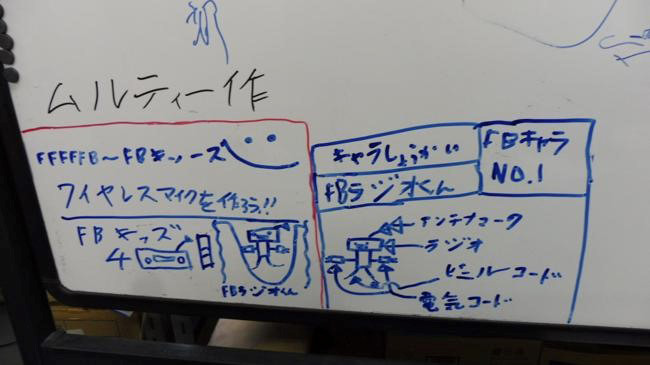 ムルティー作
FFFFFB～FBキッズ
ワイヤレスマイクを作ろう!!
FBキッズ
4
FBラジオくん
キャラしょうかい
FBラジオくん
FBキャラ
NO.1
アンテナマーク
ラジオ
ビニルコード
電気コード